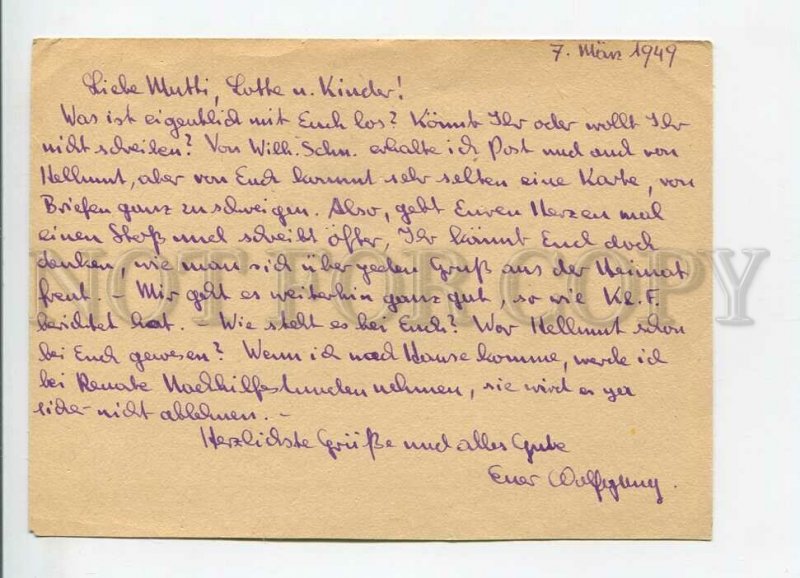 7. März 1949
Liebe Mutti, Lotte u. Kinder!
Was ist eigentlich mit Euch los? Könnt Ihr oder wollt Ihr
nicht schreiben? Von Wilh. Schn. erhalte ich Post und auch von
Hellmut, aber von Euch kommt sehr selten eine Karte, von
Briefen ganz zu schweigen. Also, gebt Euren Herzen mal
einen Stoß und schreibt öfter, Ihr könnt Euch doch
denken, wie man sich über jeden Gruß aus der Heimat
freut. – Mir geht es weiterhin ganz gut, so wie Kl. F.
berichtet hat. – Wie steht es bei Euch? War Hellmut schon
bei Euch gewesen? Wenn ich nach Hause komme, werde ich
bei Renate Nachhilfestunden nehmen, sie wird es ja
sicher nicht ablehnen. –
Herzlichste Grüße und alles Gute
Euer Wolfgang.
NOT FOR COPY